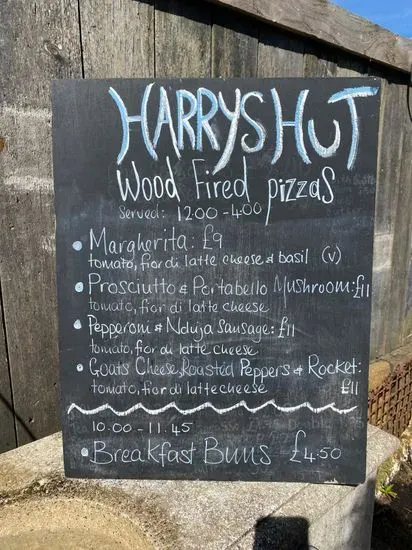 HARRYS HUT
Wood Fired pizzas
Served: 12.00 - 4.00
• Margherita: £9
tomato, fior di latte cheese & basil (V)
• Prosciutto & Portabello Mushroom: £11
tomato, fior di latte cheese
• Pepperoni & Nduja Sausage: £11
tomato, fior di latte cheese
• Goats Cheese, Roasted Peppers & Rocket:
tomato, fior di latte cheese £11
10.00 - 11.45
• Breakfast Buns £4.50